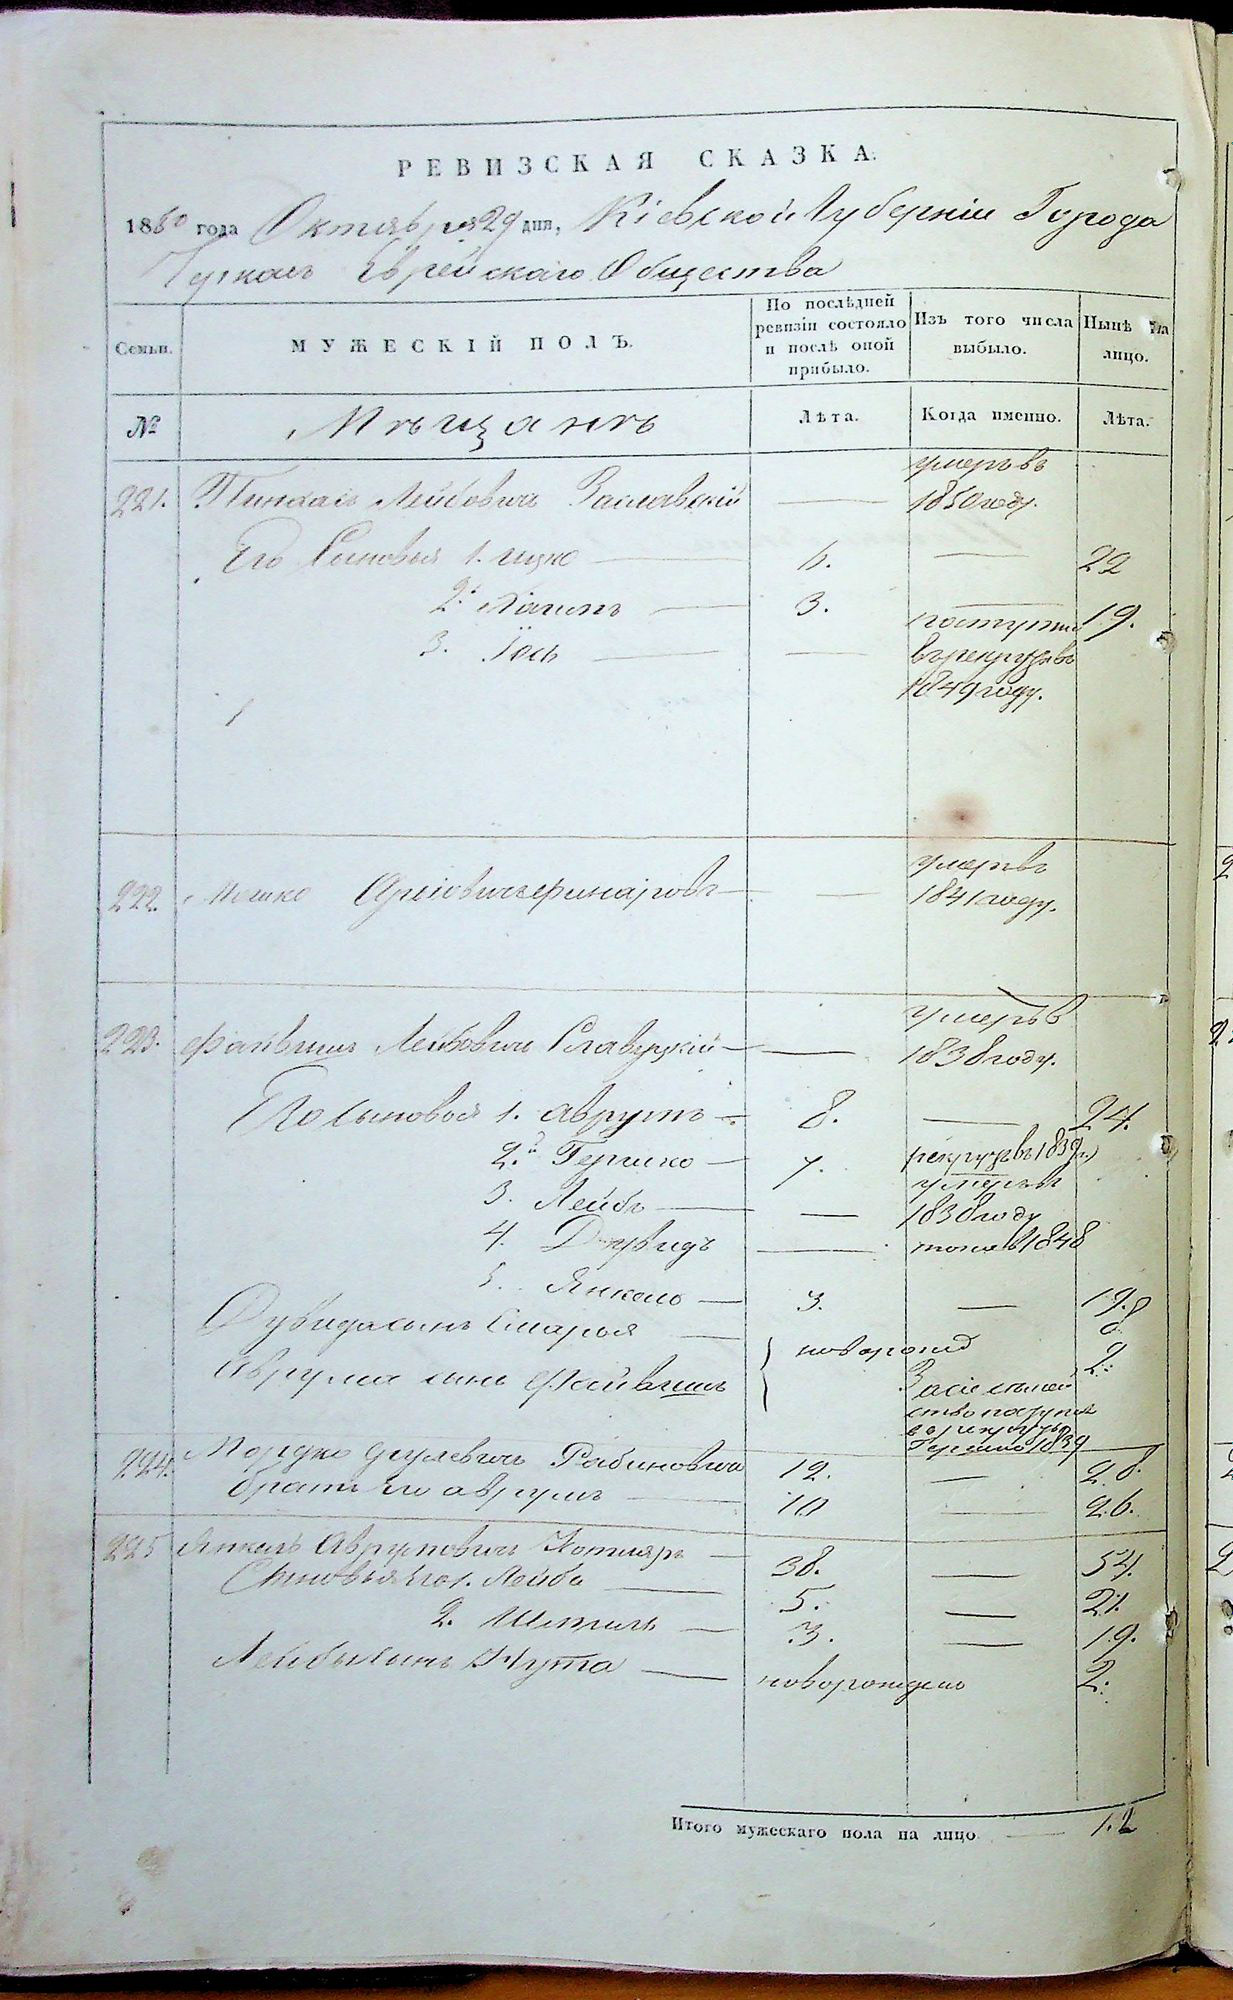 РЕВИЗСКАЯ СКАЗКА.
1850 года Октября 29 дня, Кіевской Губерніи Города
Еврейскаго Общества
Семьи.
МУЖЕСКІЙ ПОЛЪ.
По послѣдней
ревизіи состояло
и послѣ оной
прибыло.
Изъ того числа
выбыло.
Нынѣ на
лицо.
№
Мѣщанъ
Лѣта.
Когда именно.
Лѣта.
умеръ въ
221. Пинхасъ Лейбовичъ Заславскій — — 1850 году.
Его Сыновья 1. Ицко — 6. — 22
2. Хаимъ — 3. — 19.
поступил
3. Іось — — в рекруты в
1849 году.
умер в
222. Мошко — 1841 году.
умеръ в
223. Файвишъ Лейбовичъ Славуцкій — — 1838 году.
Его сыновья 1. Аврумъ — 8. — 24.
2. Гершко — 7. рекруты в 1839
умеръ в
3. Лейба — — 1838 году
4. Дувидъ — тоже в 1848
5. Янкель — 3. — 19.
Дувида сынъ — 8
новорожд
Аврума сынъ Файвишъ 2.
поступил
в рекруты
Гершко 1839
224. Мордко Рабиновичъ 12. — 28.
братъ его Аврумъ — 10 — 26.
225 Янкель Аврумовичъ Котляръ — 38. — 54.
Сыновья его 1. Лейба — 5. — 21.
2. — 3. — 19.
Лейбы сынъ Нута — новорожденъ 2.
Итого мужескаго пола на лицо — 12